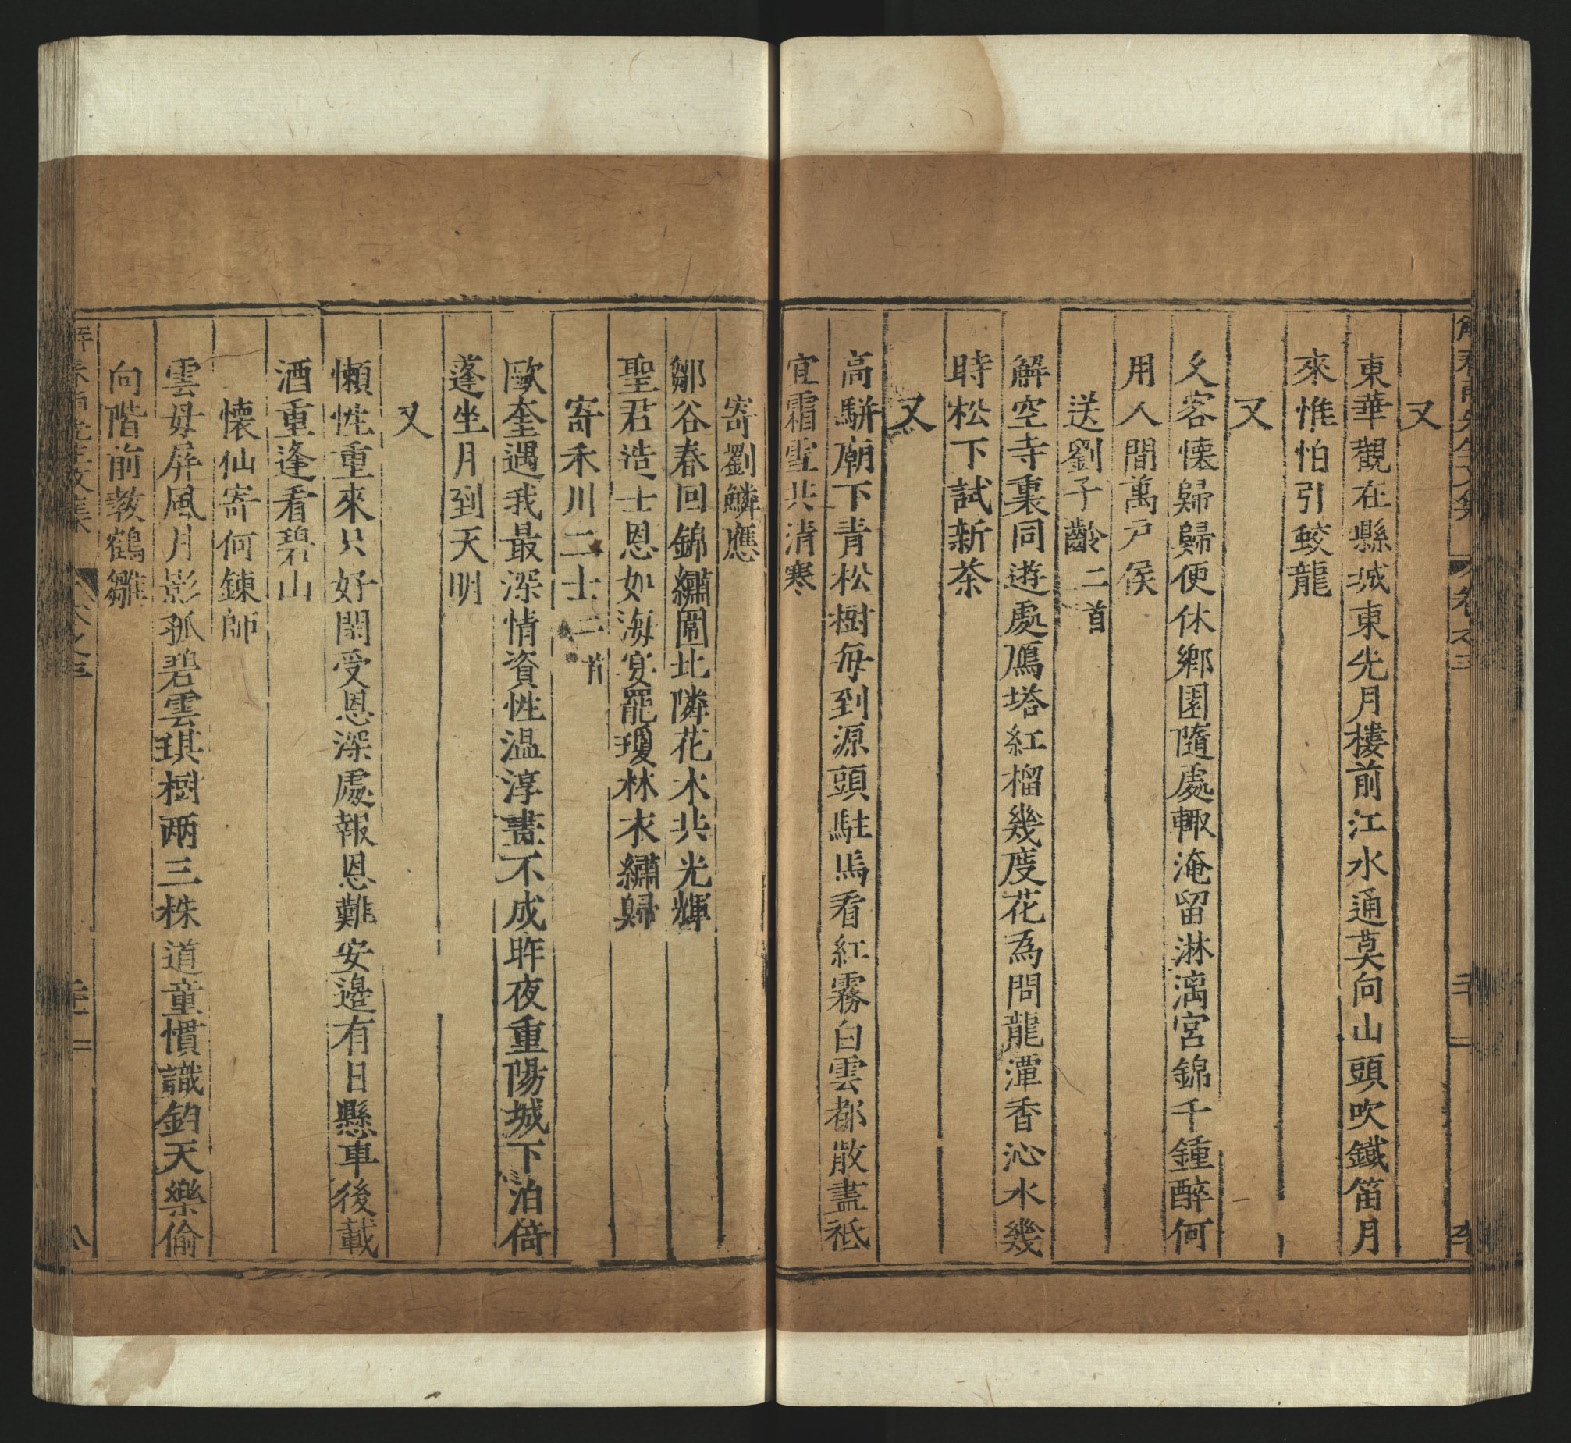 又
東華觀在縣城東先月樓前江水通莫向山頭吹鐵笛月
來惟怕引蛟龍
又
久客懷歸歸便休鄉園隨處輙淹留淋漓宮錦千鍾醉何
用人間萬戶侯
送劉子齡二首
解空寺裏同遊處鴈塔紅榴幾度花為問龍潭香沁水幾
時松下試新茶
又
高駢廟下青松樹每到源頭駐馬看紅霧白雲都散盡秪
宜霜雪共清寒
寄劉鱗應
鄒谷春回錦繡圍北隣花木共光輝
聖君造士恩如海宴罷瓊林衣繡歸
寄禾川二士二首
歐奎遇我最深情資性温淳畫不成昨夜重陽城下泊倚
蓬坐月到天明
又
懶性重來只好閒受恩深處報恩難安邊有日懸車後載
酒重逢看碧山
懷仙寄何鍊師
雲母屏風月影孤碧雲琪樹两三株道童慣識鈞天樂偷
向階前教鶴雛